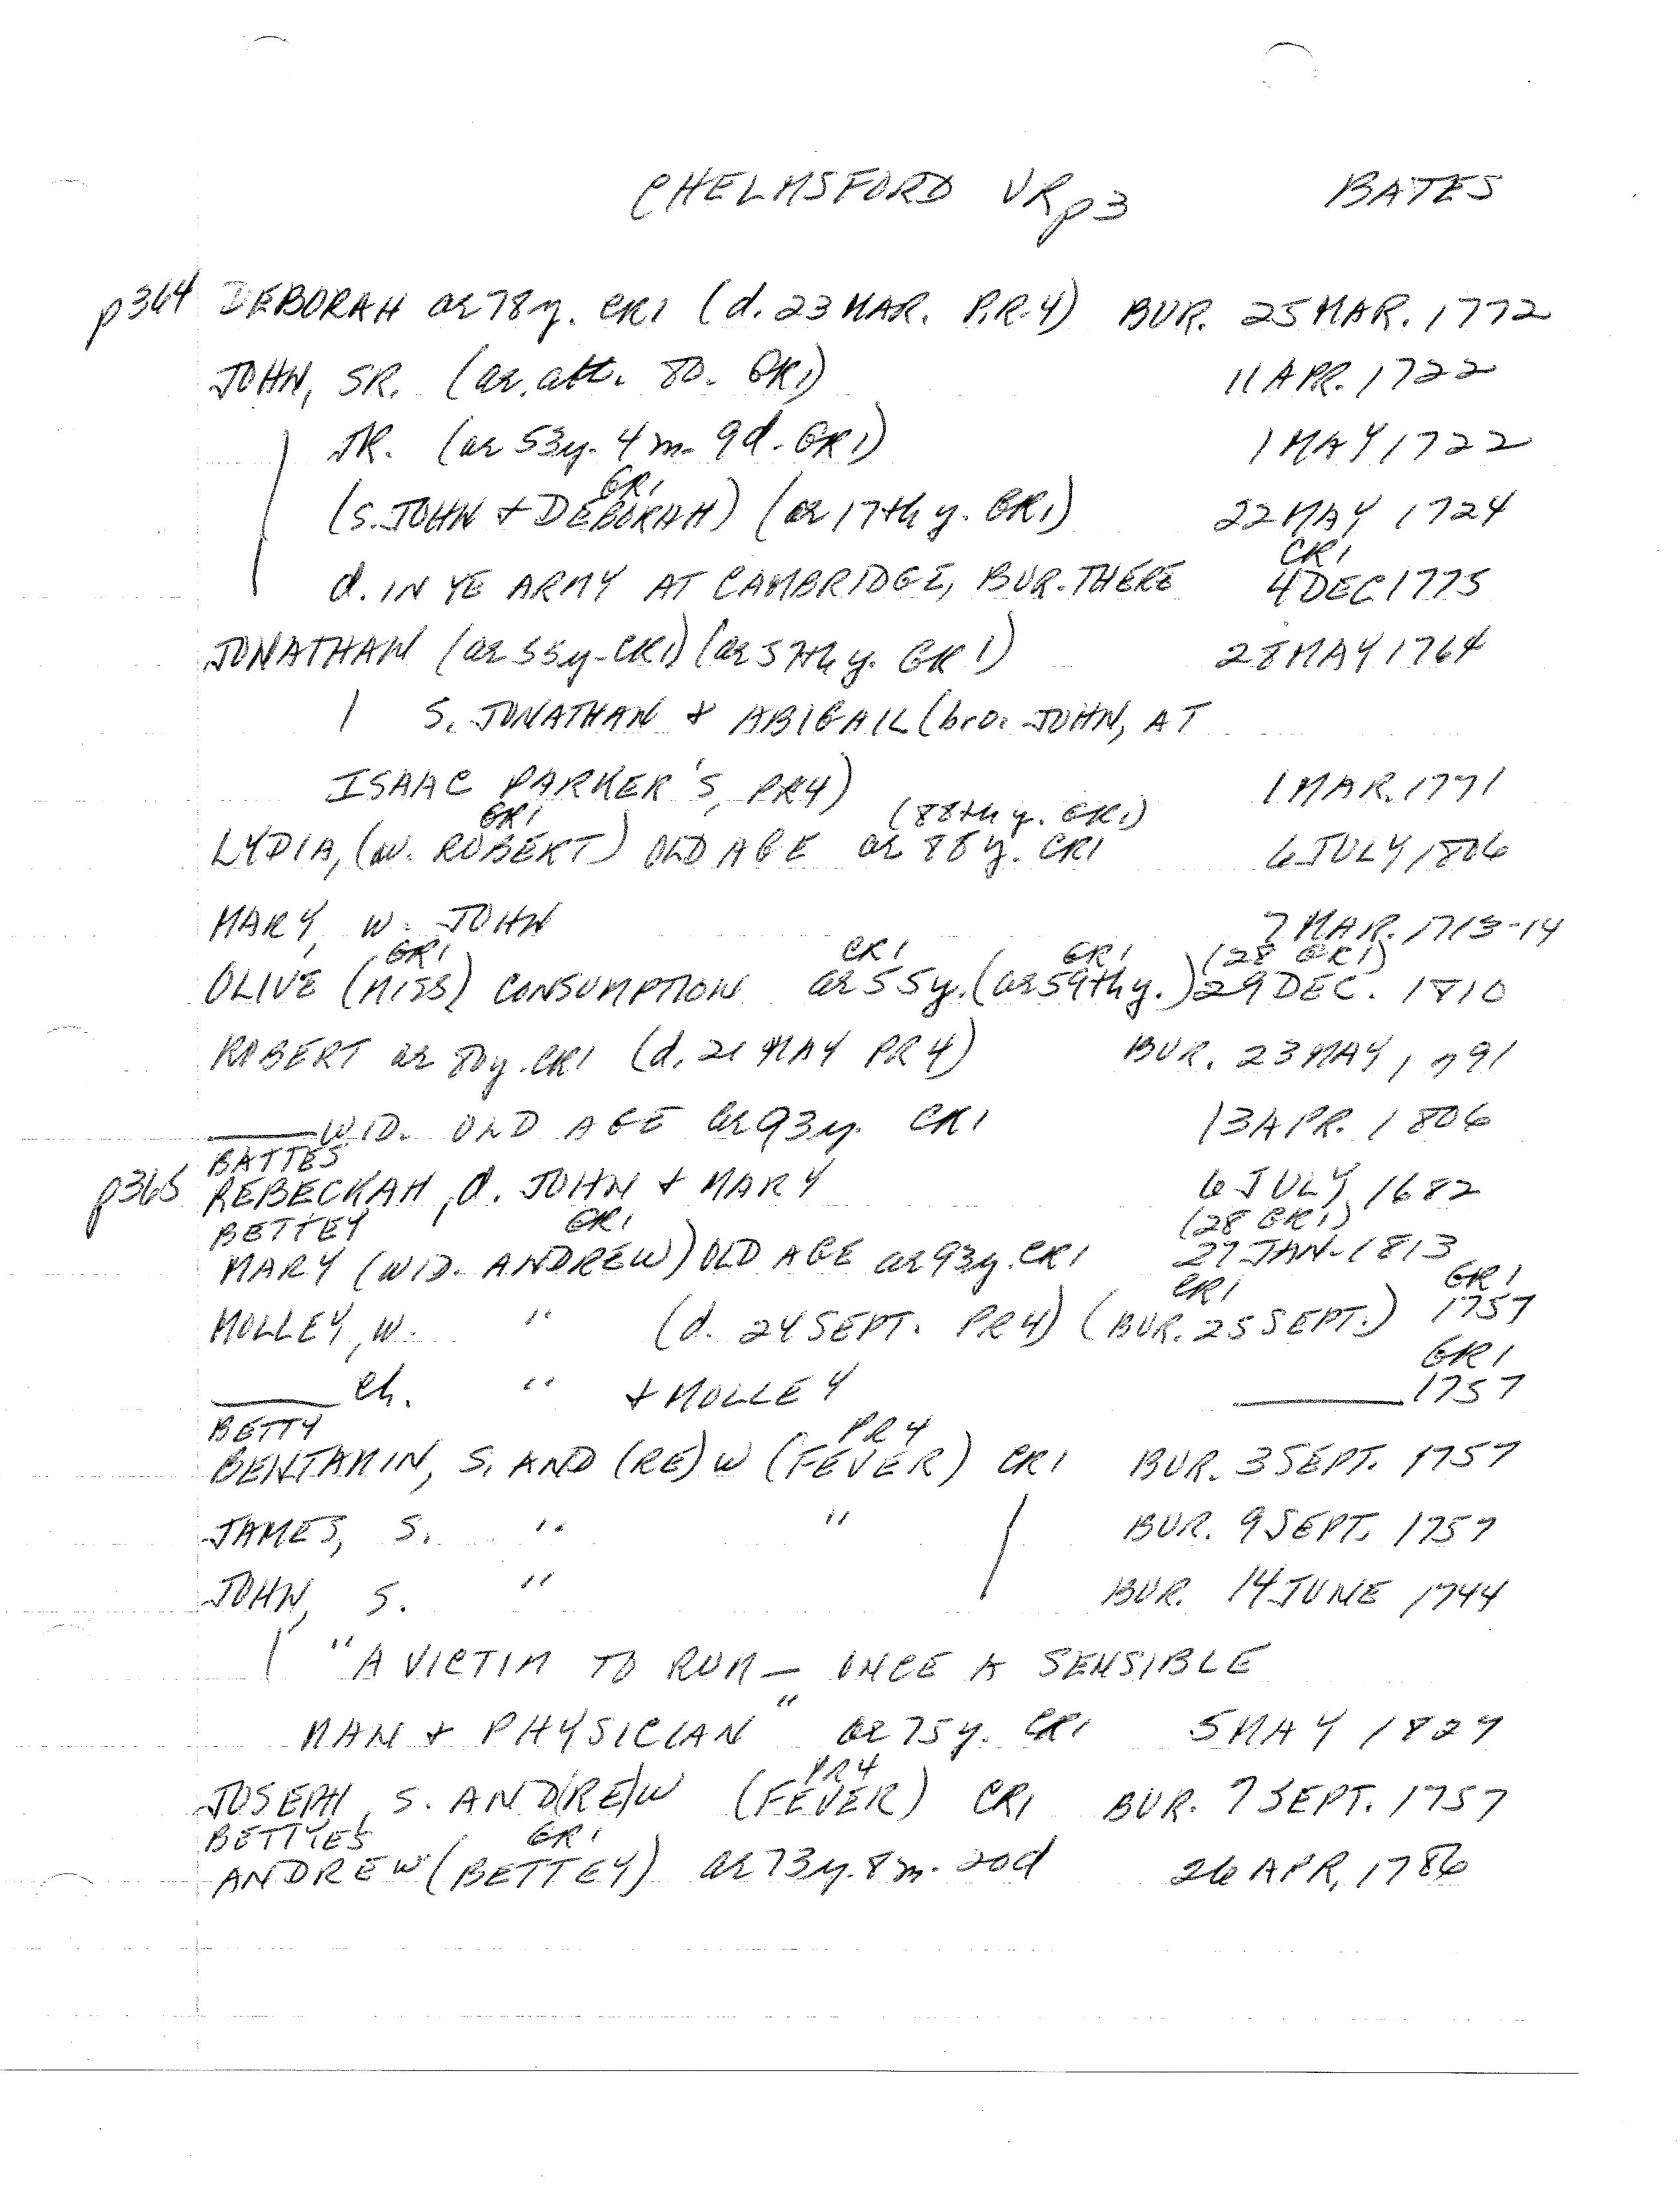 CHELMSFORD VR p3 BATES
p364 DEBORAH ae 78 y. CR1 (d. 23 MAR. P.R.4) BUR. 25 MAR. 1772
JOHN, SR. (ae. abt. 80. GR1) 11 APR. 1722
JR. (ae 53y. 4 m. 9d. GR1) 1 MAY 1722
GR1
(S. JOHN + DEBORAH) (ae 17th y. GR1) 22 MAY 1724
CR1
d. IN YE ARMY AT CAMBRIDGE, BUR. THERE 4 DEC 1775
JONATHAN (ae 55y. CR1) (ae 57th y. GR1) 28 MAY 1764
S. JONATHAN + ABIGAIL (bro. JOHN, AT
ISAAC PARKER'S, PR4) 1 MAR. 1771
GR1 (88th y. GR1)
LYDIA, (w. ROBERT) OLD AGE ae 88 y. CR1 6 JULY 1806
MARY, W. JOHN 7 MAR. 1713-14
GR1 CR1 GR1 (28 GR1)
OLIVE (MISS) CONSUMPTION ae 55y. (ae 59th y.) 29 DEC. 1810
ROBERT ae 80y. CR1 (d. 21 MAY PR4) BUR. 23 MAY, 1791
——— WID. OLD AGE ae 93 y. CR1 13 APR. 1806
BATTES
p365 REBECKAH, d. JOHN + MARY 6 JULY 1682
BETTEY GR1 (28 GR1)
MARY (WID. ANDREW) OLD AGE ae 93y. CR1 27 JAN. 1813
CR1 GR1
MOLLEY, W. " (d. 24 SEPT. PR4) (BUR. 25 SEPT.) 1757
GR1
——— Ch. " + MOLLEY ——— 1757
BETTY PR4
BENJAMIN, S. AND (RE)W (FEVER) CR1 BUR. 3 SEPT. 1757
JAMES, S. " " BUR. 9 SEPT. 1757
JOHN, S. " BUR. 14 JUNE 1744
"A VICTIM TO RUM — ONCE A SENSIBLE
MAN + PHYSICIAN" ae 75 y. CR1 5 MAY 1827
PR4
JOSEPH, S. AND(RE)W (FEVER) CR1 BUR. 7 SEPT. 1757
BETTYES GR1
ANDREW (BETTEY) ae 73y. 8 m. 20d 26 APR. 1786